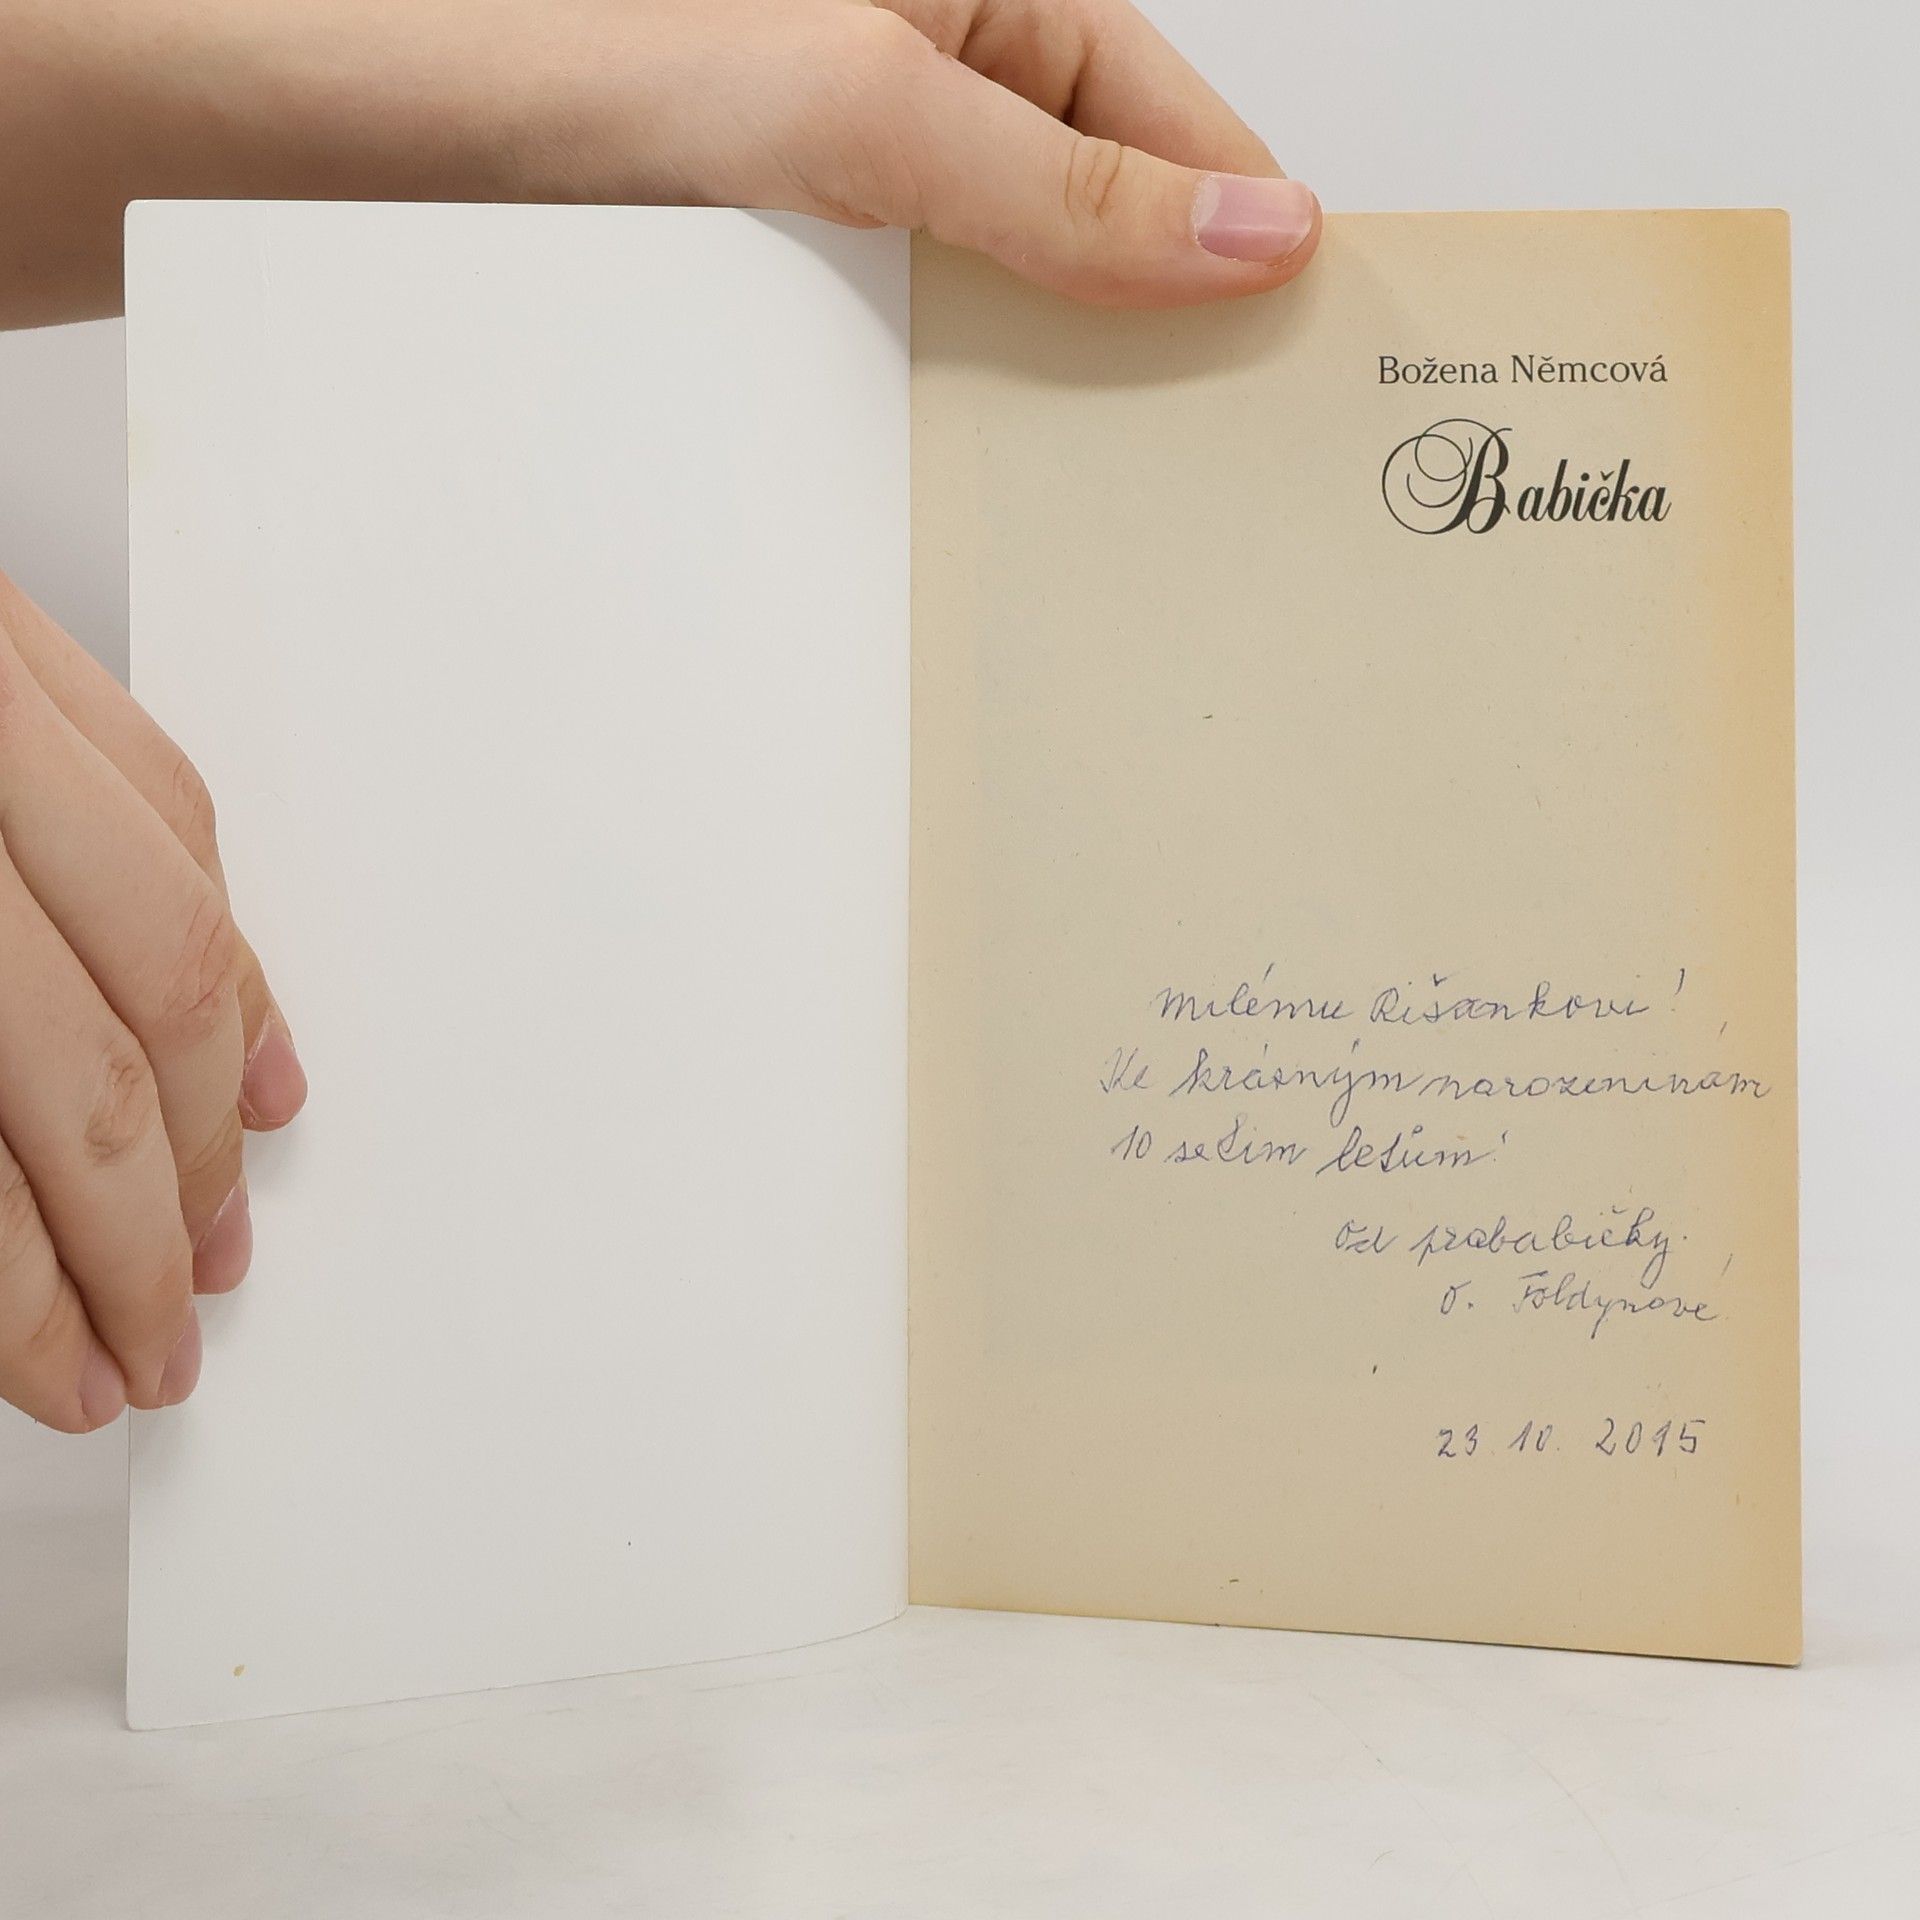 Božena Němcová
Babička
Milému Ríšankovi!
Ke krásným narozeninám
10 setim letům!
Od prababičky.
O. Földynové
23. 10. 2015